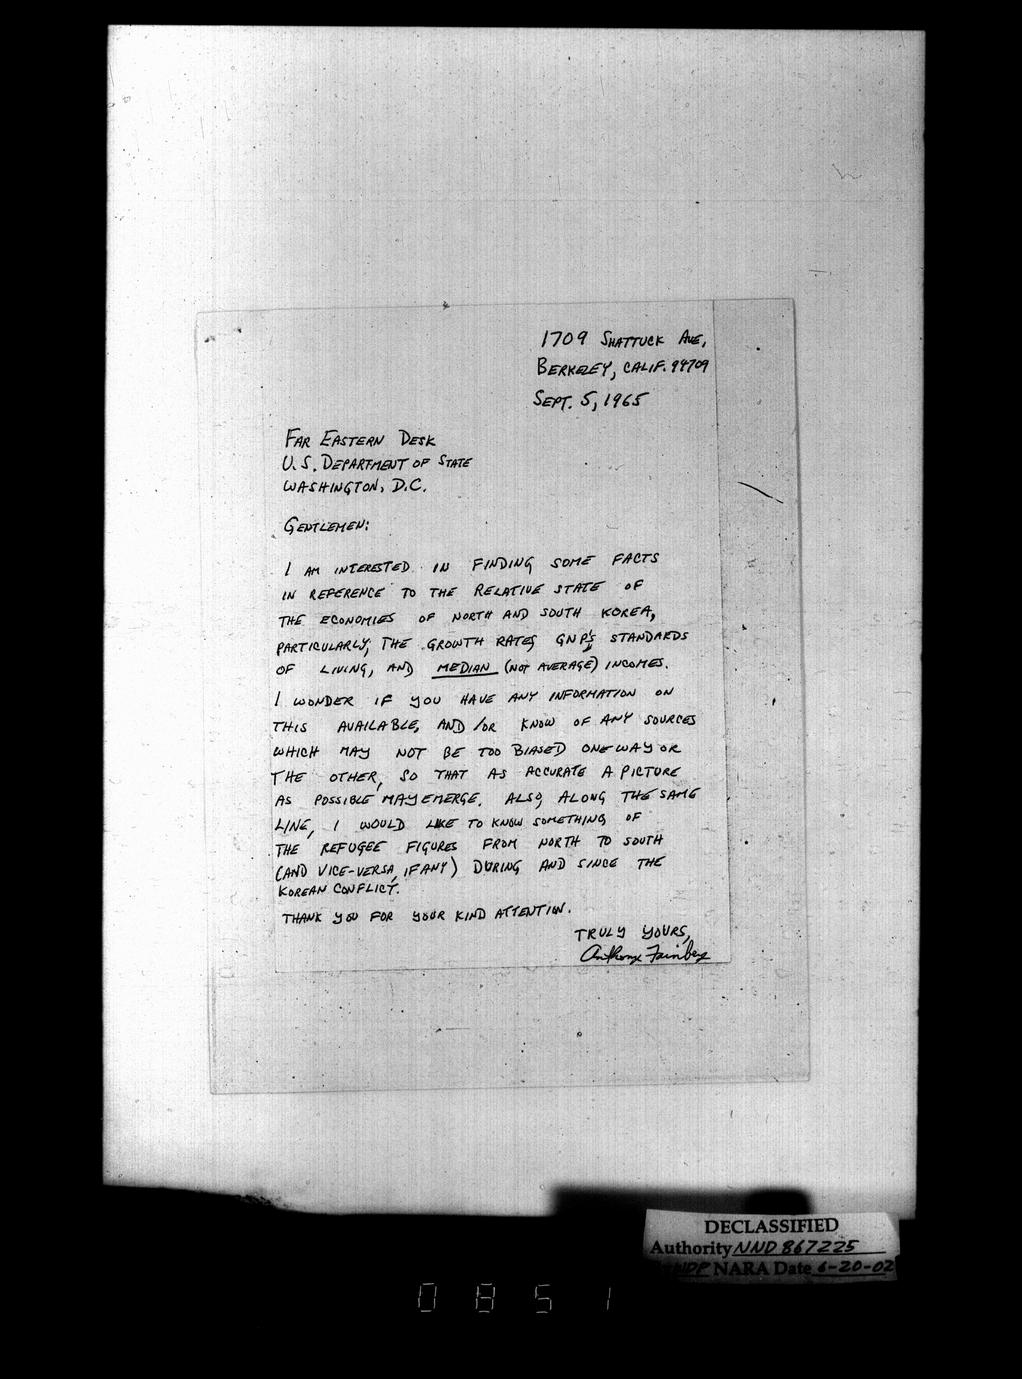 1709 SHATTUCK AVE,
BERKELEY, CALIF. 94709
SEPT. 5, 1965
FAR EASTERN DESK
U.S. DEPARTMENT OF STATE
WASHINGTON, D.C.
GENTLEMEN:
I AM INTERESTED IN FINDING SOME FACTS
IN REFERENCE TO THE RELATIVE STATE OF
THE ECONOMIES OF NORTH AND SOUTH KOREA,
PARTICULARLY, THE GROWTH RATES, GNP'S, STANDARDS
OF LIVING, AND MEDIAN (NOT AVERAGE) INCOMES.
I WONDER IF YOU HAVE ANY INFORMATION ON
THIS AVAILABLE, AND/OR KNOW OF ANY SOURCES
WHICH MAY NOT BE TOO BIASED ONE WAY OR
THE OTHER, SO THAT AS ACCURATE A PICTURE
AS POSSIBLE MAY EMERGE. ALSO, ALONG THE SAME
LINE, I WOULD LIKE TO KNOW SOMETHING OF
THE REFUGEE FIGURES FROM NORTH TO SOUTH
(AND VICE-VERSA, IF ANY) DURING AND SINCE THE
KOREAN CONFLICT.
THANK YOU FOR YOUR KIND ATTENTION.
TRULY YOURS,
Anthony Fainberg
DECLASSIFIED
Authority NND 867225
NARA Date 6-20-02
0851